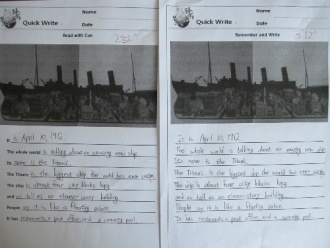 Name
Quick Write
Date
Read with Cue
232"
It is April 10, 1912
The whole world is talking about an amazing new ship
Its name is the Titanic
The Titanic is the biggest ship the world has ever seen
The ship is almost four city blocks long
and as tall as an eleven-story building
People say it is like a floating palace
It has restaurants a post office, and a swimming pool.
Name
Quick Write
Date
Remember and Write
It is April 10, 1912
The whole world is talking about an amazing new ship
Its name is the Titanic
The Titanic is the biggest ship the world has ever seen
The ship is almost four city blocks long
and as tall as an eleven-story building
People say it is like a floating palace
It has restaurants a post office, and a swimming pool.